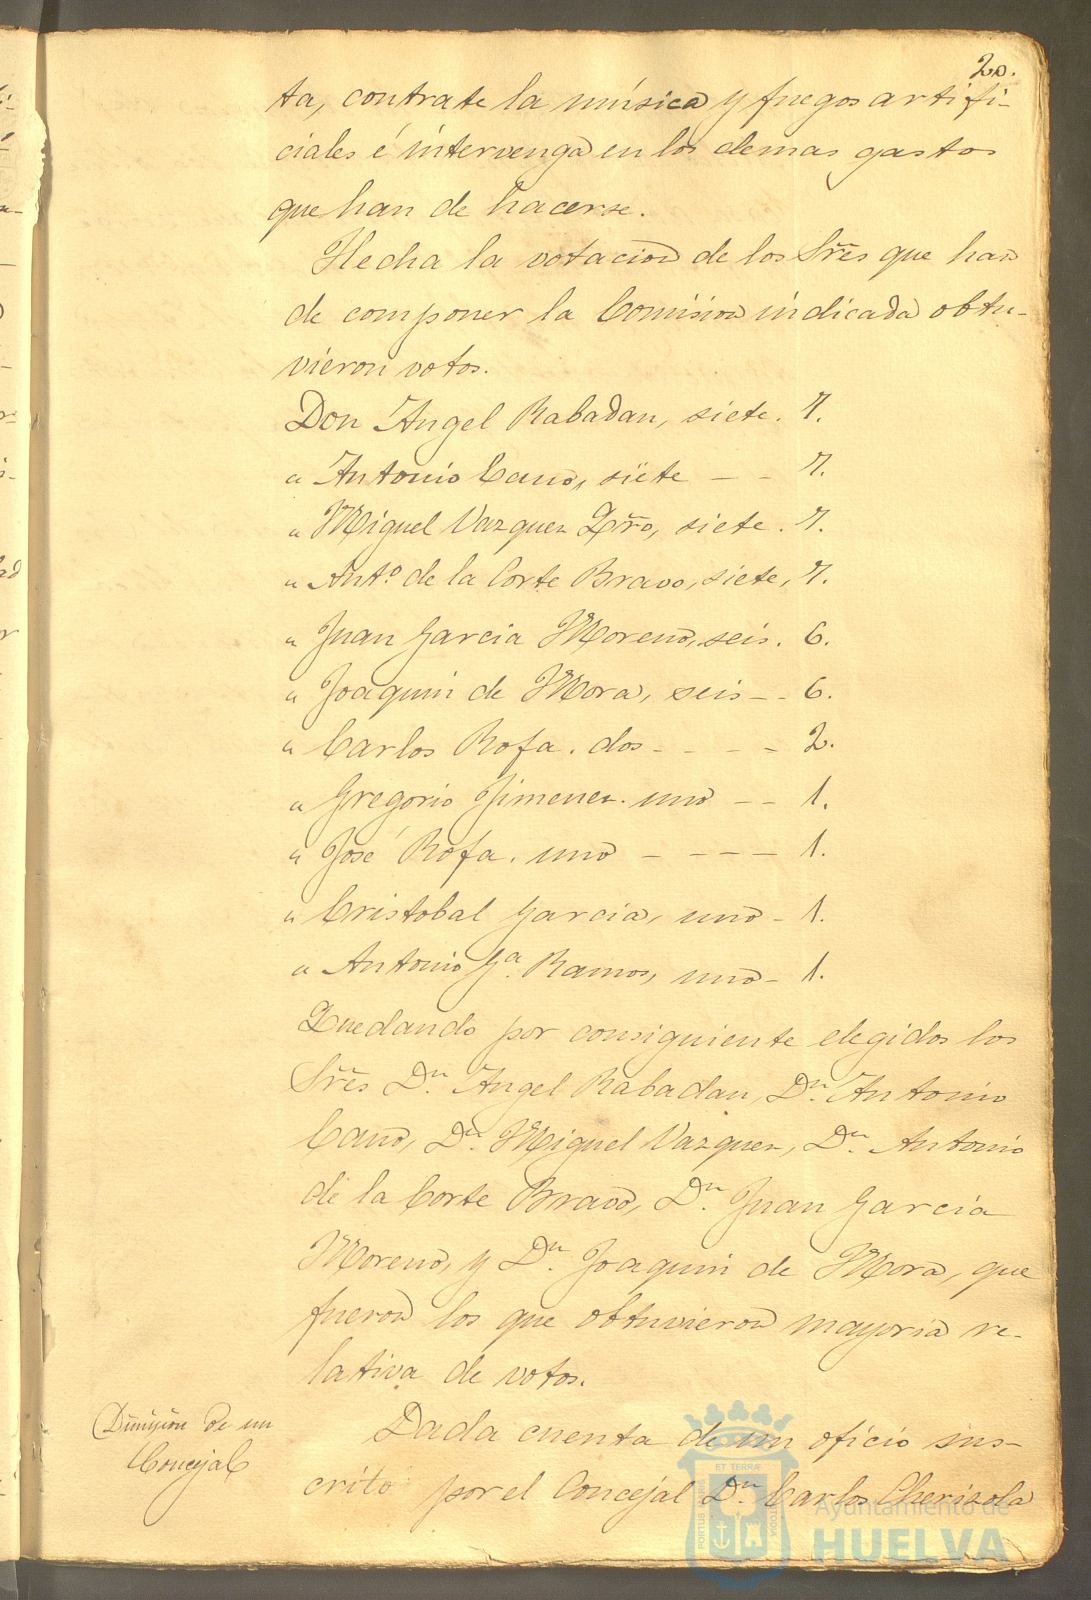 20.
ta, contrate la música y fuegos artifi-
ciales é intervenga en los demas gastos
que han de hacerse.
Hecha la votacion de los Sres que han
de componer la Comision indicada obtu-
vieron votos.
Don Angel Rabadan, siete. 7.
" Antonio Cano, siete - - 7.
" Miguel Vazquez Qro, siete. 7.
" Antº de la Corte Bravo, siete, 7.
" Juan Garcia Moreno, seis. 6.
" Joaquin de Mora, seis - - 6.
" Carlos Rofa. dos - - - - 2.
" Gregorio Jimenez. uno - - 1.
" José Rofa. uno - - - - 1.
" Cristobal Garcia, uno - 1.
" Antonio Gª. Ramos, uno - 1.
Quedando por consiguiente elegidos los
Sres Dn. Angel Rabadan, Dn. Antonio
Cano, Dn. Miguel Vazquez, Dn. Antonio
de la Corte Bravo, Dn. Juan Garcia
Moreno, y Dn. Joaquin de Mora, que
fueron los que obtuvieron mayoria re-
lativa de votos.
Dimision de un
Concejal
Dada cuenta de un oficio sus-
crito por el Concejal Dn. Carlos Cherizola
Ayuntamiento de
HUELVA